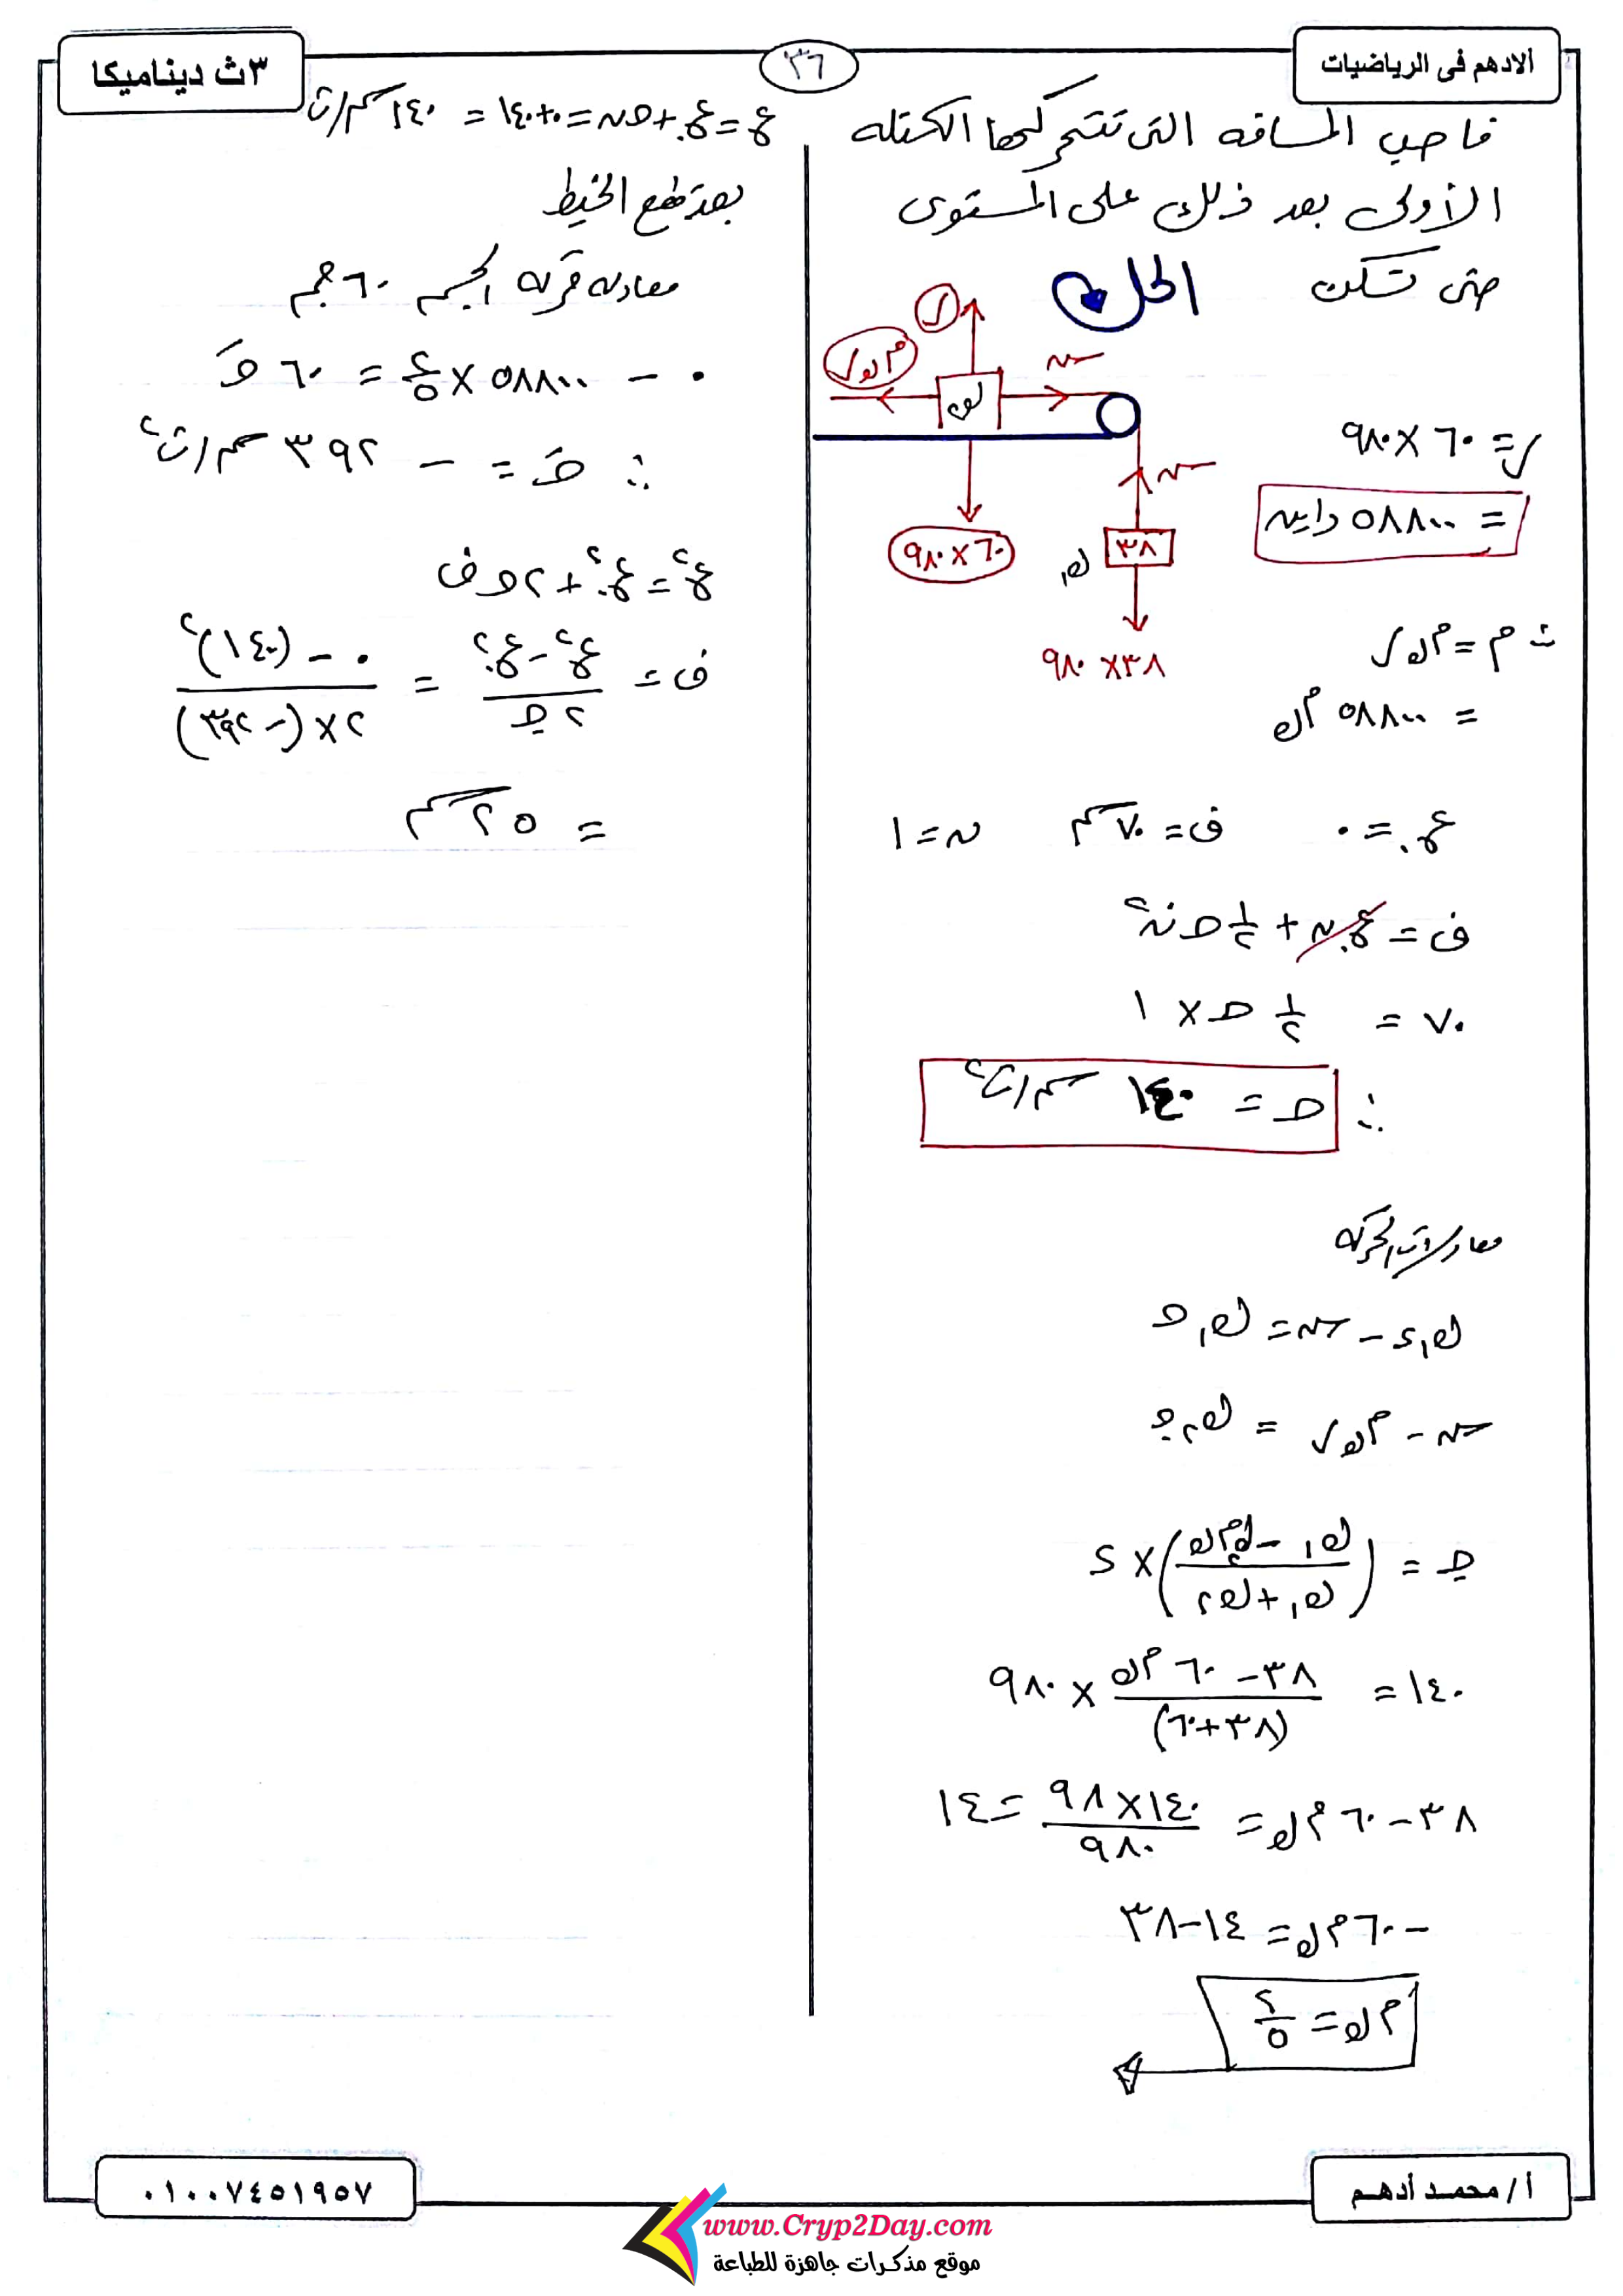 ألادهم فى الرياضيات
٣٦
٣ث ديناميكا
فاحسب المسافه التى تتحركها الكتله
الأولى بعد ذلك على المستوى
حتى تسكن
الحل
ر
م ك ر
ك٢
٩٨٠×٦٠
٣٨
ك١
٩٨٠×٣٨
ر = ٦٠ × ٩٨٠
= ٥٨٨٠٠ داين
∵ م = م ك ر
= ٥٨٨٠٠ م ك
ع. = ٠ ف = ٧٠ سم ن = ١
ف = ع. ن + ١/٢ حـ ن٢
٧٠ = ١/٢ حـ × ١
∴ حـ = ١٤٠ سم/ث٢
معادلات الحركه
ك١ء - ش = ك١ حـ
ش - م ك ر = ك٢ حـ
حـ = (ك١ - م ك ك٢ / ك١ + ك٢) × ء
١٤٠ = ٣٨ - ٦٠ م ك / (٣٨+٦٠) × ٩٨٠
٣٨ - ٦٠ م ك = ١٤٠×٩٨ / ٩٨٠ = ١٤
- ٦٠ م ك = ١٤ - ٣٨
م ك = ٢/٥
ع = ع. + حـ ن = ٠ + ١٤٠ = ١٤٠ سم/ث
بعد قطع الخيط
معادله حركه الجسم ٦٠ جم
٠ - ٥٨٨٠٠ × ٢/٥ = ٦٠ حـَ
∴ حـَ = - ٣٩٢ سم/ث٢
ع٢ = ع.٢ + ٢ حـ ف
ف = ع٢ - ع.٢ / ٢ حـ = ٠ - (١٤٠)٢ / ٢ × (- ٣٩٢)
= ٢٥ سم
أ/ محمد أدهم
٠١٠٠٧٤٥١٩٥٧
www.Cryp2Day.com
موقع مذكرات جاهزة للطباعة